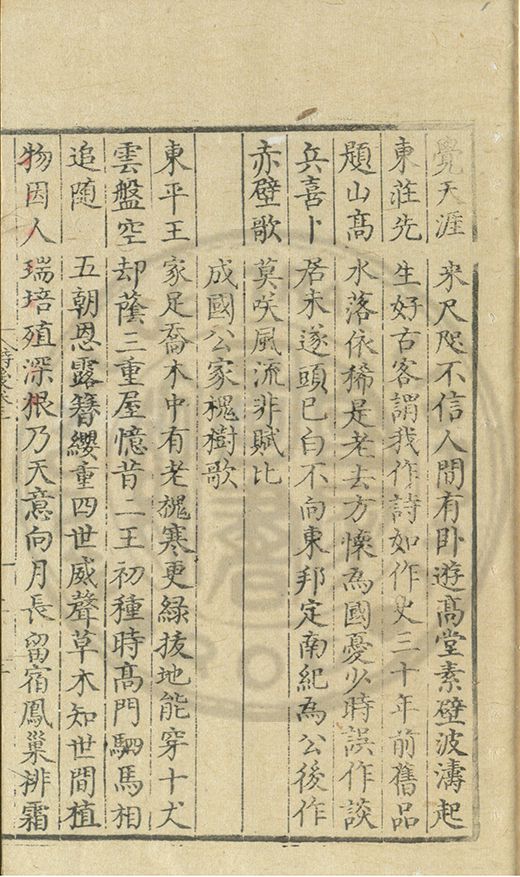 覺天涯来尺咫不信人間有卧遊髙堂素壁波濤起
東莊先生好古客謂我作詩如作史三十年前舊品
題山髙水落依稀是老去方懷為國憂少時誤作談
兵喜卜居未遂頭已白不向東邦定南紀為公後作
赤壁歌莫咲風流非賦比
成國公家槐樹歌
東平王家足喬木中有老槐寒更綠拔地能穿十丈
雲盤空却蔭三重屋憶昔二王初種時髙門駟馬相
追随五朝恩露簪纓重四世威聲草木知世間植
物因人瑞培殖深根乃天意向月長留宿鳳巢排霜